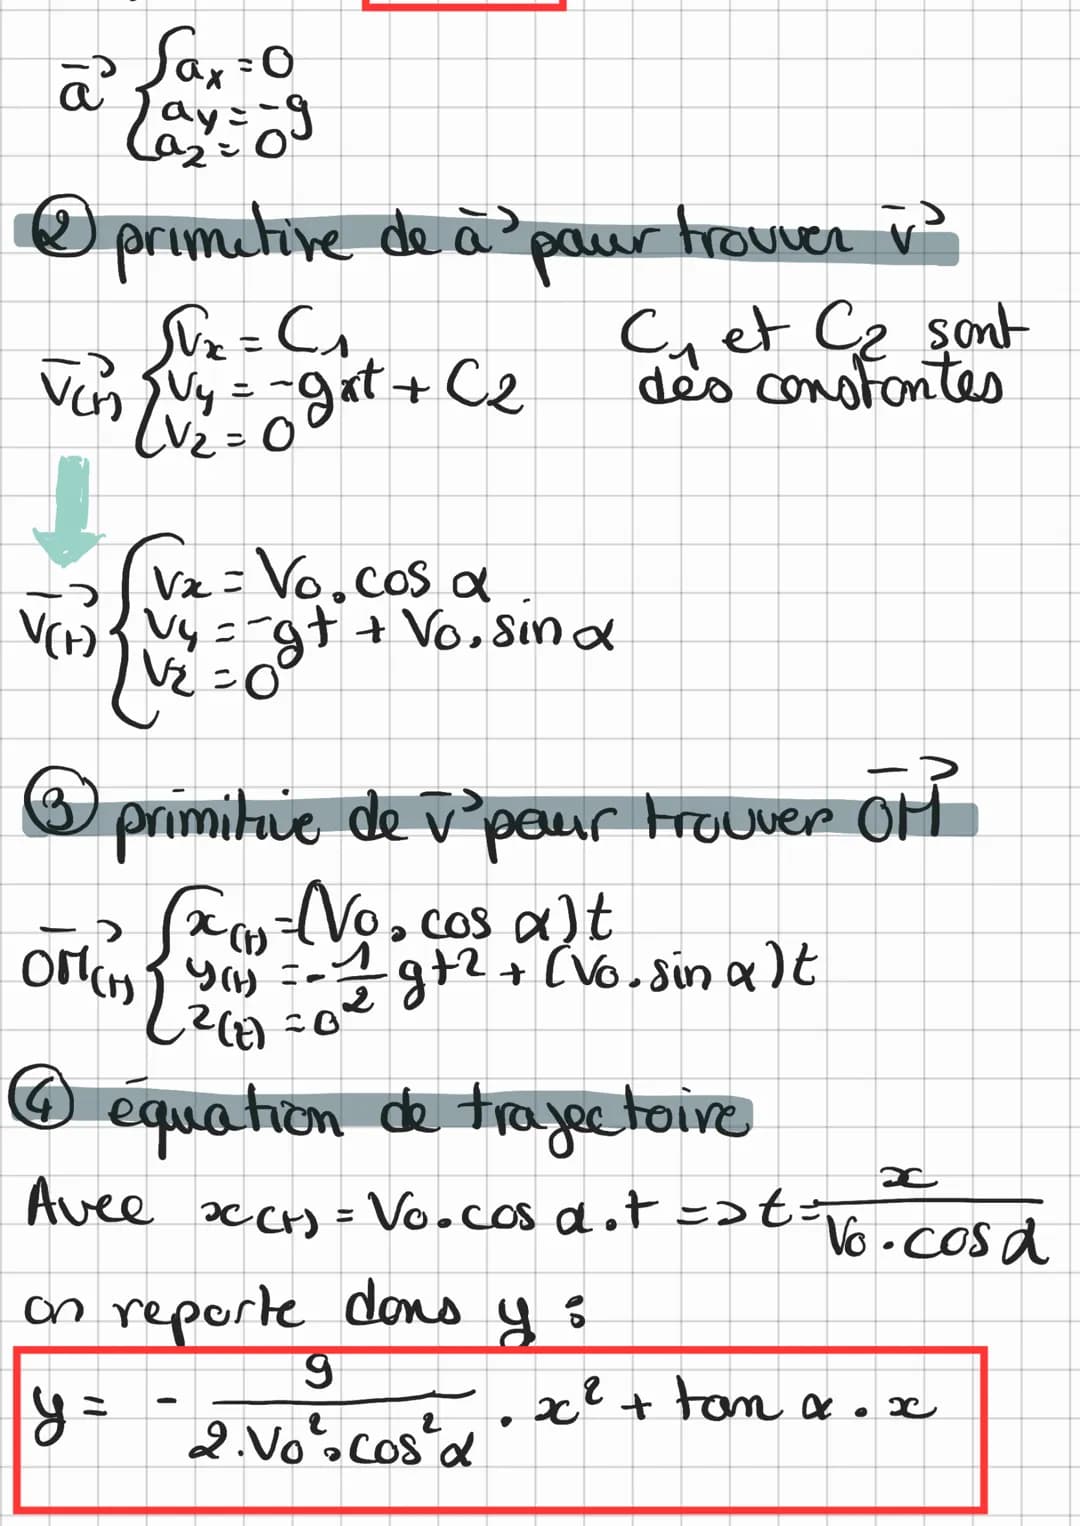 a⃗ { ax = 0
ay = -g
az = 0
② primitive de a⃗ pour trouver v⃗
v⃗(t) { Vx = C1
Vy = -g×t + C2
Vz = 0
C1 et C2 sont
des constantes
v⃗(t) { Vx = V0.cos α
Vy = -gt + V0.sin α
Vz = 0
③ primitive de v⃗ pour trouver OM⃗
OM⃗(t) { x(t) = (V0.cos α)t
y(t) = -1/2 gt² + (V0.sin α)t
z(t) = 0
④ équation de trajectoire
Avec x(t) = V0.cos α.t => t = x / V0.cos α
on reporte dans y :
y = - g / 2.V0².cos²α . x² + tan α . x